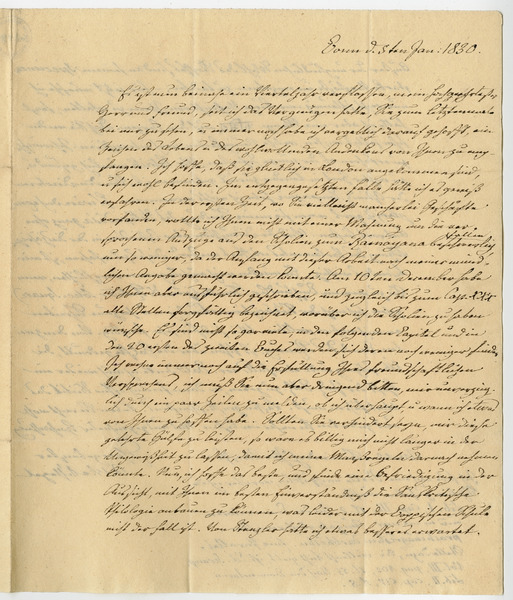 Bonn d. 5ten Jan: 1830.
Es ist nun beinahe ein Vierteljahr verflossen, mein hochgeehrtester
Herr und Freund, seit ich das Vergnügen hatte, Sie zum letztenmale
bei mir zu sehen, u immer noch habe ich vergeblich darauf gehofft, ein
Zeichen des Lebens u des wohlwollenden Andenkens von Ihnen zu emp-
fangen. Ich hoffe, daß Sie glücklich in London angekommen sind,
u sich wohl befinden. Im entgegengesetzten Falle hätte ich es gewiß
erfahren. In der ersten Zeit, wo Sie vielleicht mancherlei Geschäfte
vorfanden, wollte ich Ihnen nicht mit einer Mahnung um die ver-
sprochenen Auszüge aus den Scholien zum Ramayana beschwerlich fallen
um so weniger, da der Anfang mit dieser Arbeit nach meiner münd-
lichen Angabe gemacht werden konnte. Am 10ten habe
ich Ihnen aber ausführlich geschrieben, und zugleich bis zum Cap.
alle Stellen sorgfältig bezeichnet, worüber ich die Scholien zu haben
wünsche. Es sind nicht so gar viele, in den folgenden Capiteln und in
den 20 ersten des zweiten Buches werden sich deren noch weniger finden.
Ich rechne immer noch auf die Erfüllung Ihres freundschaftlichen
Versprechens, ich muß Sie nun aber dringend bitten, mir unverzüg-
lich durch ein paar Zeilen zu melden, ob ich überhaupt u wann ich etwas
von Ihnen zu hoffen habe. Sollten Sie verhindert seyn, mir diese
gelehrte Hülfe zu leisten, so wäre es billig mich nicht länger in der
Ungewißheit zu lassen, damit ich meine Maaßregeln darnach nehmen
könnte. Nun, ich hoffe das beste, und finde eine Befriedigung in der
Aussicht, mit Ihnen im besten Einverständniß die Sanskritische
Philologie anbauen zu können, was leider mit der Boppischen Schule
nicht der Fall ist. Von Stenzler hätte ich etwas besseres erwartet.